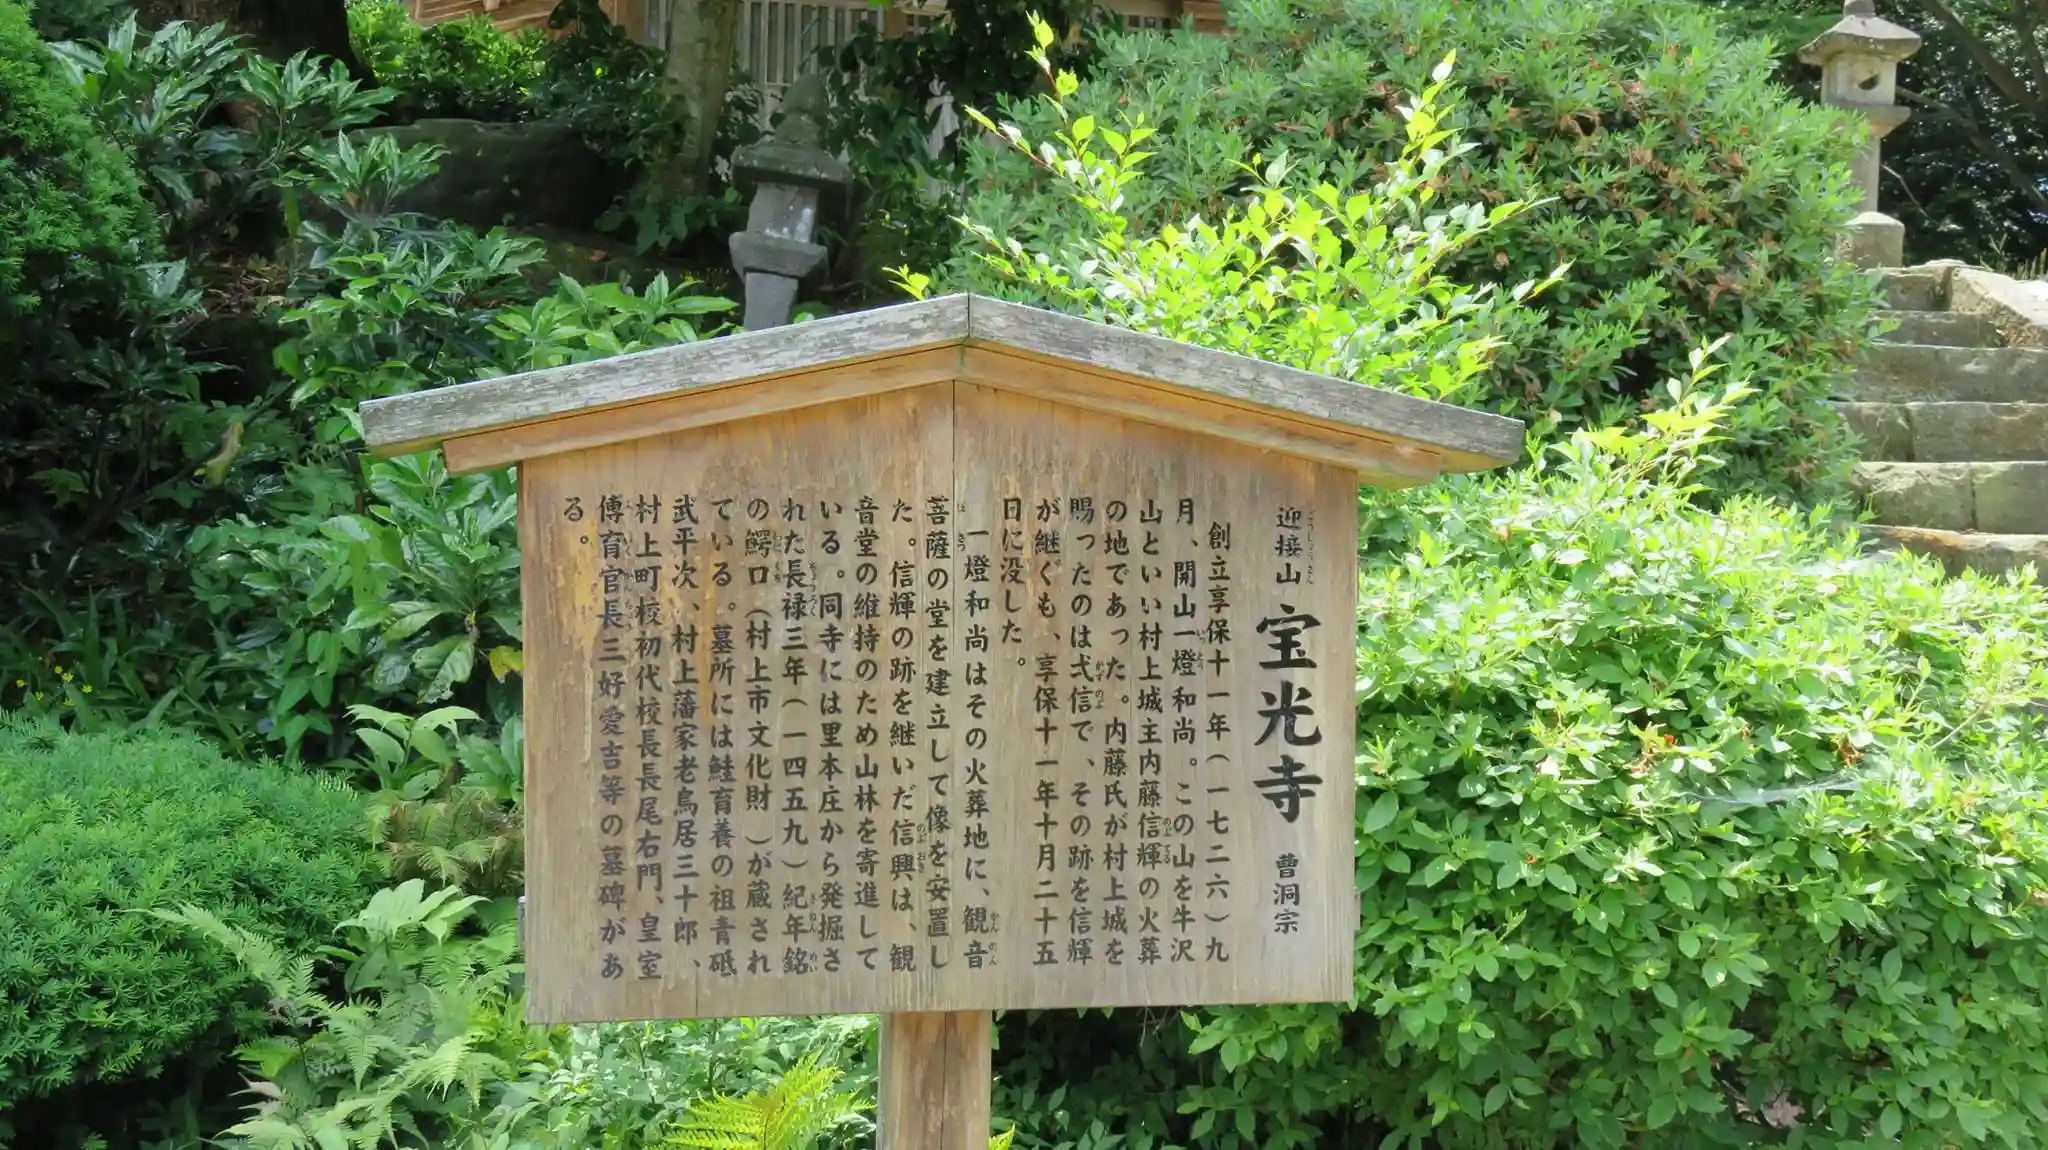 迎接山 宝光寺 曹洞宗
創立享保十一年（一七二六）九
月、開山一燈和尚。この山を牛沢
山といい村上城主内藤信輝の火葬
の地であった。内藤氏が村上城を
賜ったのは弌信で、その跡を信輝
が継ぐも、享保十一年十月二十五
日に没した。
一燈和尚はその火葬地に、観音
菩薩の堂を建立して像を安置し
た。信輝の跡を継いだ信興は、観
音堂の維持のため山林を寄進して
いる。同寺には里本庄から発掘さ
れた長禄三年（一四五九）紀年銘
の鰐口（村上市文化財）が蔵され
ている。墓所には鮭育養の祖青砥
武平次、村上藩家老鳥居三十郎、
村上町校初代校長長尾右門、皇室
傅育官長三好愛吉等の墓碑があ
る。